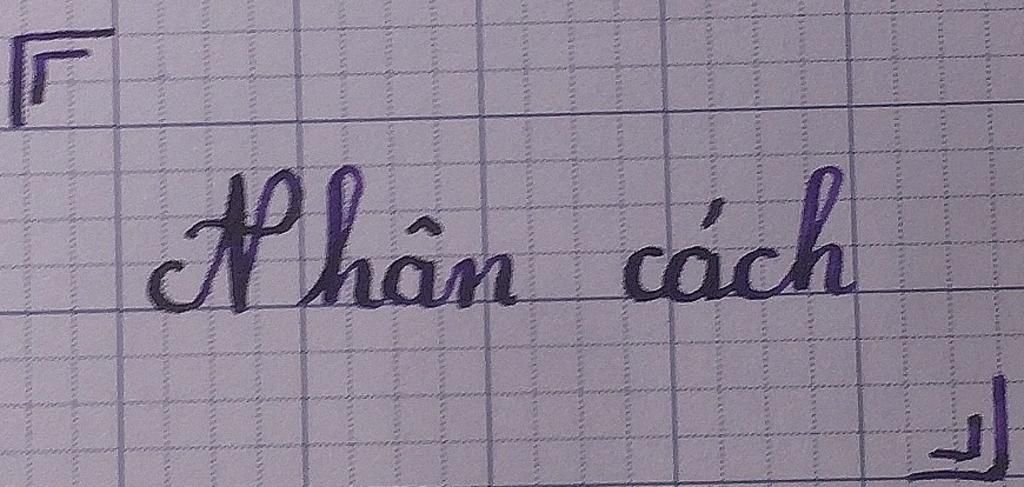 Nhân cách